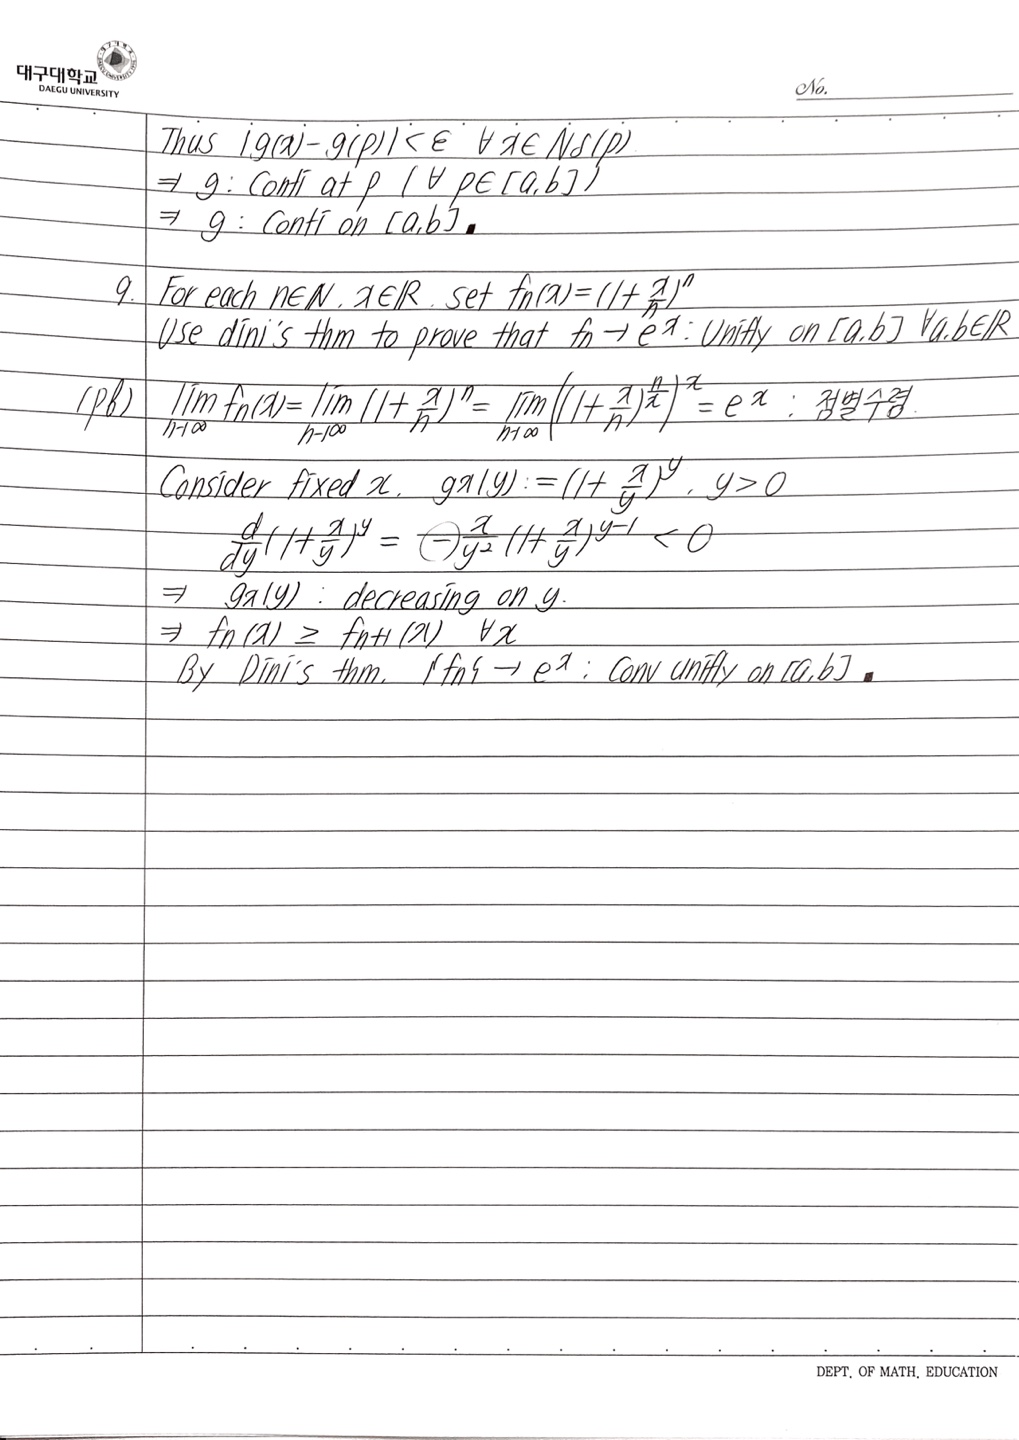 대구대학교
DAEGU UNIVERSITY
No.
Thus |g(x)-g(p)|<ε ∀x∈Nδ(p)
⇒ g: Conti at p (∀ p∈[a,b])
⇒ g: Conti on [a,b].
9. For each n∈N. x∈R. set fn(x)=(1+x/n)^n
Use dini's thm to prove that fn→e^x: Unifly on [a,b] ∀a,b∈R
(pf) lim n→∞ fn(x)=lim n→∞ (1+x/n)^n=lim n→∞ ((1+x/n)^(n/x))^x=e^x : 점별수렴.
Consider fixed x. gx(y):=(1+x/y)^y. y>0
d/dy(1+x/y)^y = (-)x/y² (1+x/y)^(y-1) <0
⇒ gx(y) : decreasing on y.
⇒ fn(x) ≥ fn+1(x) ∀x
By Dini's thm. {fn} → e^x : Conv unifly on [a,b].
DEPT. OF MATH. EDUCATION